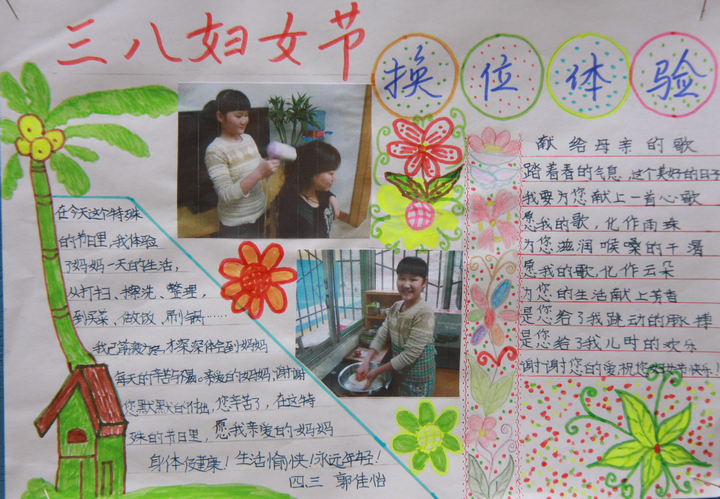 三八妇女节
换位体验
在今天这个特殊
的节日里,我体验
了妈妈一天的生活,
从打扫、擦洗、整理,
到买菜、做饭、刷锅……
我已筋疲力尽,才深深体会到妈妈
每天的辛苦与
亲爱的妈妈,谢谢
您默默的付出,您辛苦了,在这特
殊的节日里,愿我亲爱的妈妈
身体健康!生活愉快!永远年轻!
四.三 郭佳怡
献给母亲的歌
踏着春的气息 这个美好的日子
我要为您献上一首心歌
愿我的歌,化作雨珠
为您滋润喉嗓的干渴
愿我的歌,化作云朵
为您的生活献上芳香
是您给了我跳动的脉搏
是您给了我儿时的欢乐
谢谢您的爱祝您妇女节快乐!